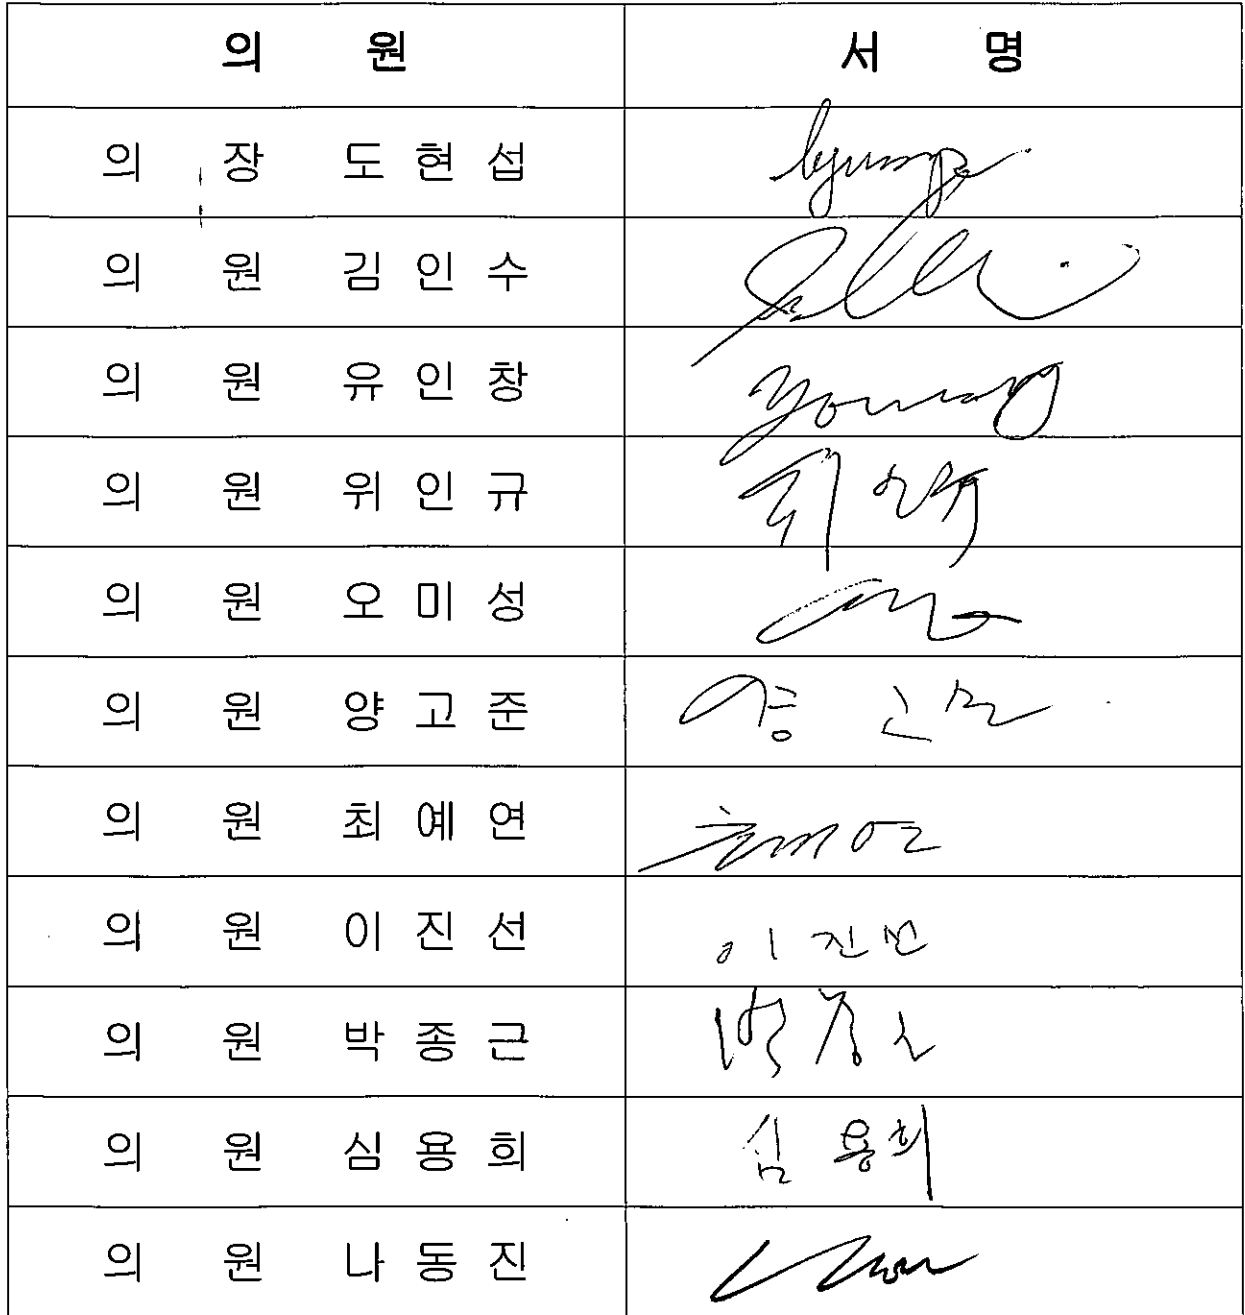 의 원 서 명
의 장 도 현 섭
의 원 김 인 수
의 원 유 인 창
의 원 위 인 규 위 인규
의 원 오 미 성
의 원 양 고 준
의 원 최 예 연
의 원 이 진 선 이 진선
의 원 박 종 근 박 종 근
의 원 심 용 희 심 용희
의 원 나 동 진